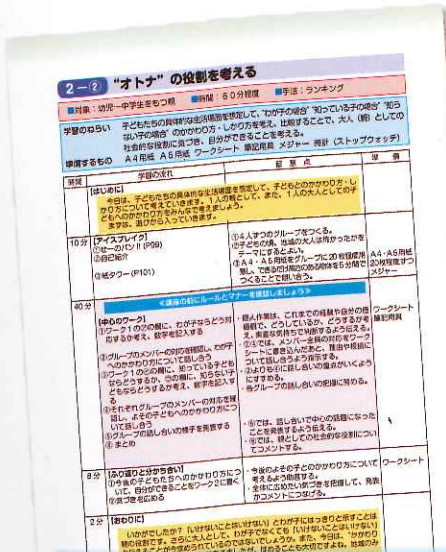 2-② “オトナ”の役割を考える
■対象：幼児～中学生をもつ親　■時間：60分程度　■手法：ランキング
学習のねらい　子どもたちの具体的な生活場面を想定して、“わが子の場合”“知っている子の場合”“知ら
ない子の場合”のかかわり方・しかり方を考え、比較することで、大人（親）としての
社会的な役割に気づき、自分ができることを考える。
準備するもの　A4用紙　A5用紙　ワークシート　筆記用具　メジャー　時計（ストップウォッチ）
時間　学習の流れ　留意点　準備
【はじめに】
今日は、子どもたちの具体的な生活場面を想定して、子どもとのかかわり方・し
かり方について考えていきます。1人の親として、また、1人の大人としての子
どもへのかかわり方をみんなで考えましょう。
まずは、遊びから入っていきます。
10分　【アイスブレイク】
①せーのパン!! (P99)
②自己紹介
③紙タワー(P101)
①4人ずつのグループをつくる。
②子どもの頃、地域の大人は怖かったかを
テーマにするとよい。
③A4・A5用紙をグループに20枚程度用
意し、できるだけ高さのある物体を5分間で
つくることで競い合う。
A4・A5用紙
20枚程度ずつ
メジャー
40分　≪講座の前にルールとマナーを確認しましょう≫
【中心のワーク】
①ワーク1の②の欄に、わが子ならどう対
応するか考え、数字を記入する
②グループのメンバーの対応を確認し、わが子
へのかかわり方について話し合う
③ワーク1の③の欄に、知っている子ども
ならどうするか、③の欄に、知らない子
どもならどうするか考え、数字を記入す
る
④それぞれグループのメンバーの対応を確
認し、よその子どもへのかかわり方につ
いて話し合う
⑤グループの話し合いの様子を発表する
⑥まとめ
・個人作業は、これまでの経験や自分の価
値観で、どうしているか、どうするかを考
え、素直な気持ちで判断するよう伝える。
・②④では、メンバー全員の対応をワーク
シートに書き込んだあと、理由や根拠に
ついて話し合うよう指示する。
・②よりも④に話し合いの重点がいくよう
にすすめる。
・各グループの話し合いの把握に努める。
・⑤では、話し合いで中心の話題になった
ことを発表するよう伝える。
・⑥では、親としての社会的な役割につい
てコメントする。
ワークシート
筆記用具
8分　【ふり返りと分かち合い】
①今後の子どもたちへのかかわり方につ
いて、自分ができることをワーク2に書く
②気づきを広める
・今後のよその子とのかかわり方について
考えるよう助言する。
・全体に広めたい気づきを把握して、発表
かコメントにつなげる。
ワークシート
2分　【おわりに】
いかがでしたか？「いけないことはいけない」とわが子にはっきりと示すことは
親の役割です。さらに大人として、わが子でなくても「いけないことはいけない」